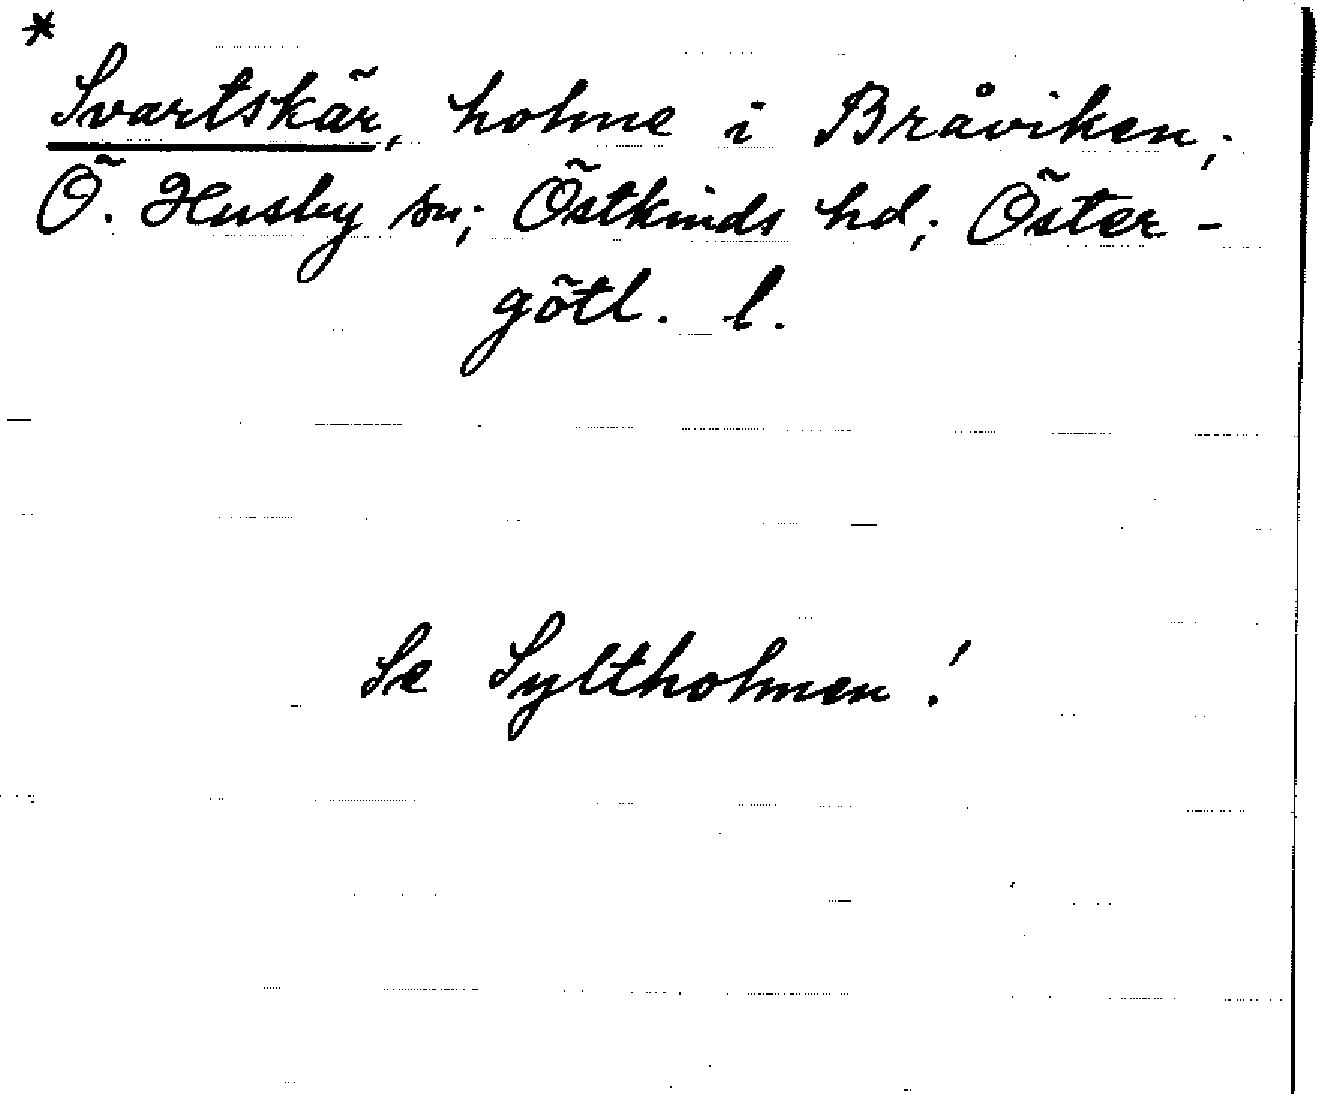 *
Svartskär, holme i Bråviken;
Ö. Husby sn; Östkinds hd; Öster-
götl. l.
Se Syltholmen!